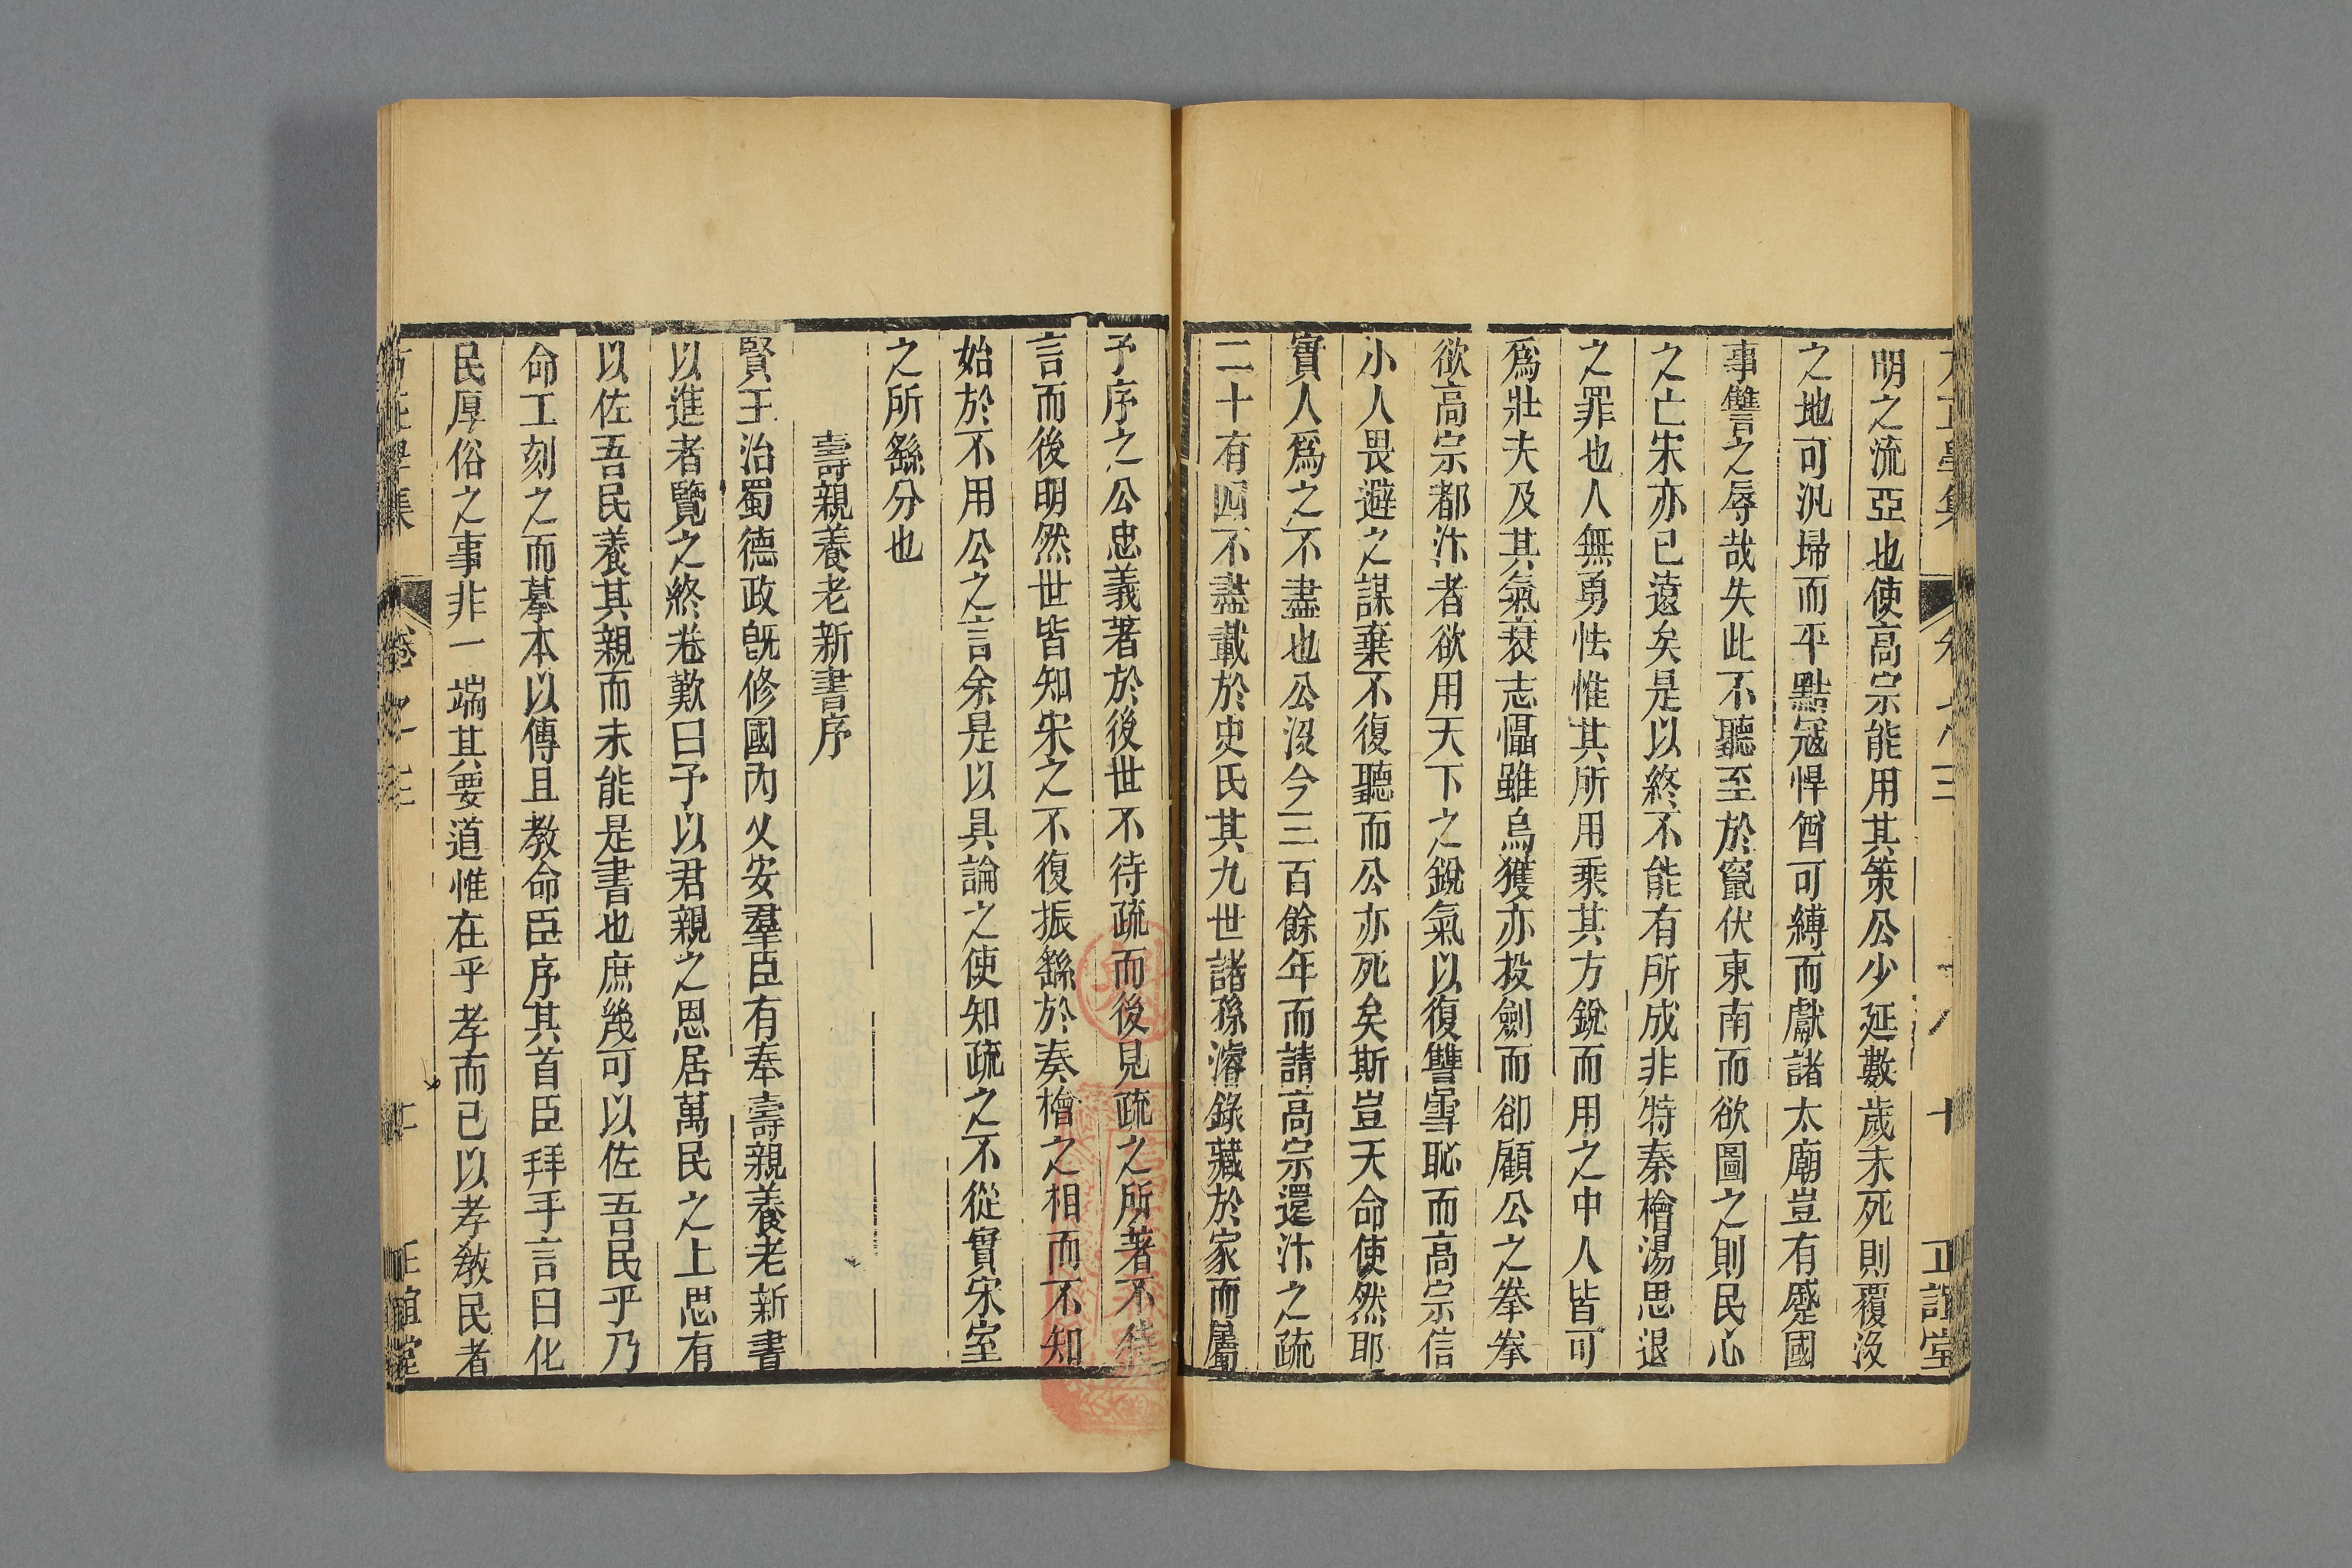 明之流亞也使高宗能用其策公少延數歲未死則覆沒
之地可汛埽而平點冦悍酋可縛而獻諸太廟豈有蹙國
事讐之辱哉失此不聽至於竄伏東南而欲圖之則民心
之亡宋亦已遠矣是以終不能有所成非特秦檜湯思退
之罪也人無勇怯惟其所用乘其方銳而用之中人皆可
爲壯夫及其氣衰志懾雖烏獲亦投劍而卻顧公之拳拳
欲高宗都汴者欲用天下之銳氣以復讐雪恥而高宗信
小人畏避之謀棄不復聽而公亦死矣斯豈天命使然耶
實人爲之不盡也公沒今三百餘年而請高宗還汴之疏
二十有四不盡載於史氏其九世諸孫濬錄藏於家而屬
予序之公忠義著於後世不待疏而後見疏之所著不待
言而後明然世皆知宋之不復振繇於奏檜之相而不知
始於不用公之言余是以具論之使知疏之不從實宋室
之所繇分也
壽親養老新書序
賢王治蜀德政旣修國內乂安羣臣有奉壽親養老新書
以進者覽之終卷歎曰予以君親之恩居萬民之上思有
以佐吾民養其親而未能是書也庶幾可以佐吾民乎乃
命工刻之而摹本以傳且教命臣序其首臣拜手言曰化
民厚俗之事非一端其要道惟在乎孝而已以孝敎民者